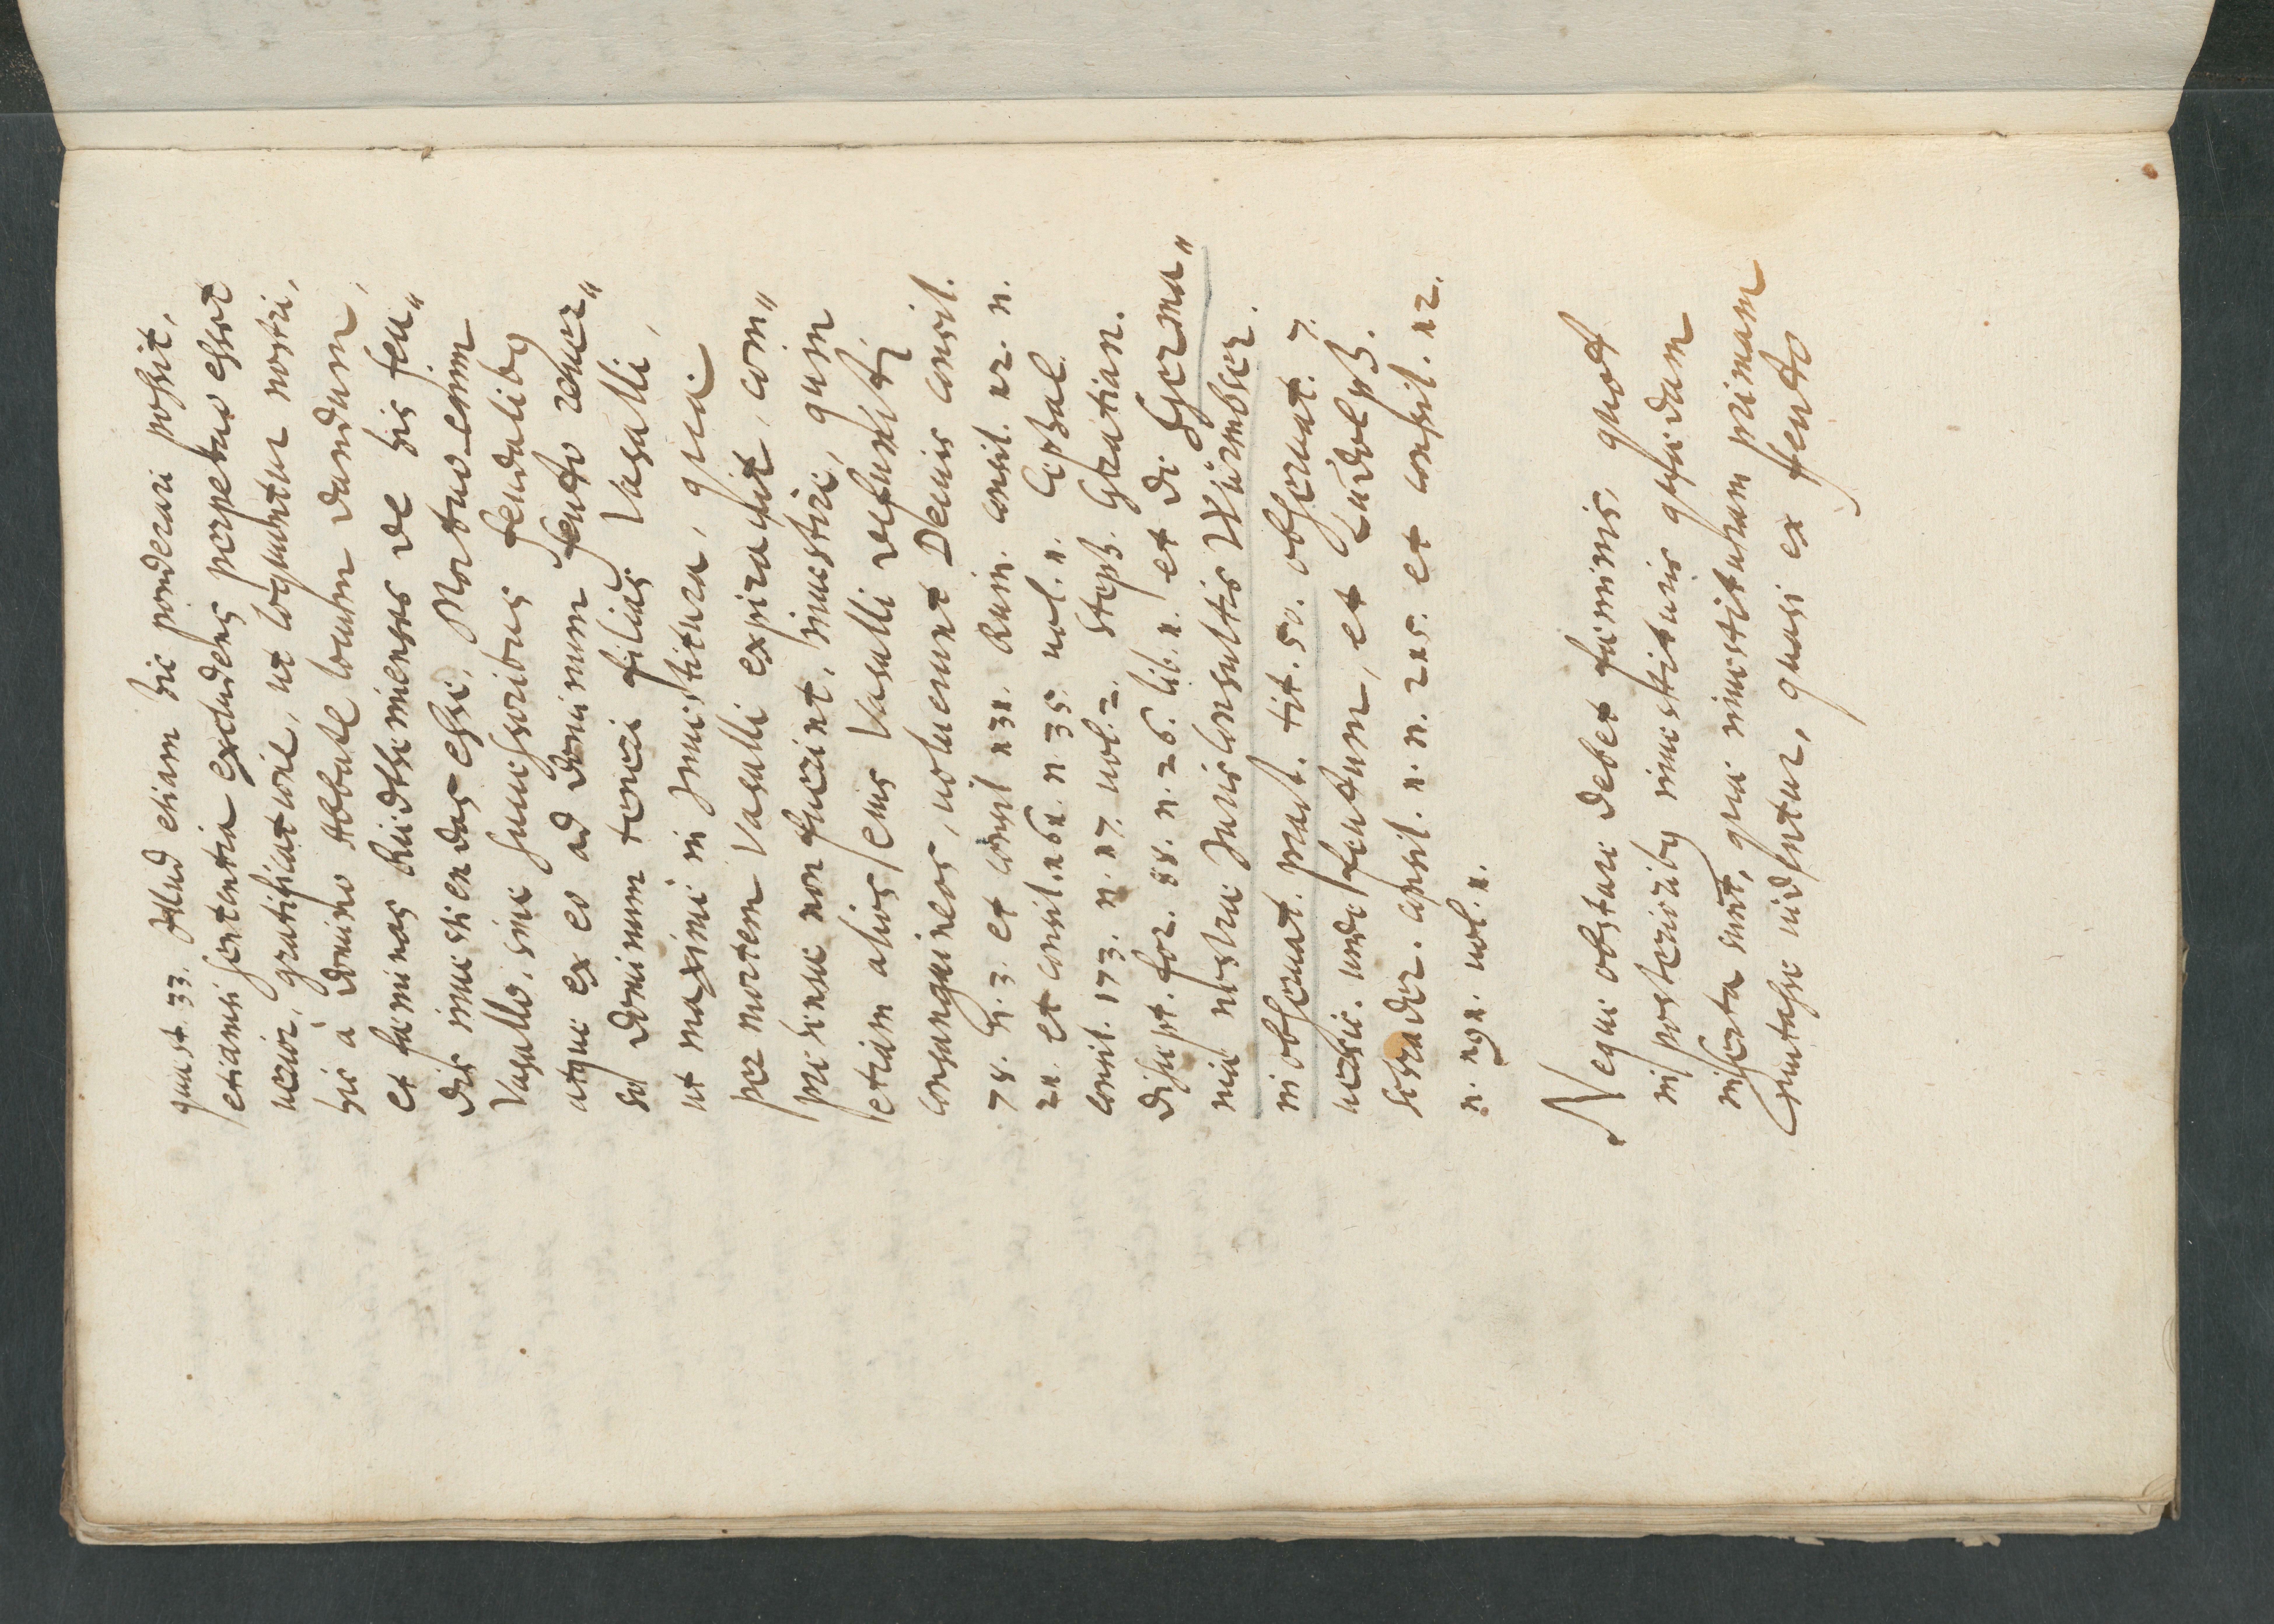 quæst. 33. Illud etiam hic ponderari possit,
etiamsi sententia excludens perpetuo esset
uerior, gratificatorie, ut loquuntur nostri,
hic à domino Abbate locum dandum,
et fæminas Rüdtheimenses de his feu„
dis inuestiendas esse. Mortuo enim
Vasallo, sine successoribus feudalibus
atque ex eo ad dominum feudo reuer„
so dominum teneri filias Vasalli,
ut maxime in Inuestitura, quæ
per mortem Vasalli expirauit, com„
prehensæ non fuerint, inuestire, quin
etiam alios eius Vasalli defuncti
consanguineos, uoluerunt Decius consil.
78. n. 3. et consil. 131. Ruin. consil. 12. n.
21. et consil. 161. n. 35. uol. 1. Cephal.
consil. 173. n. 17. uol. 2. Steph. Gratian.
discept. for. 88. n. 26. lib. 1. et de Germa„
niæ nostræ Iurisconsultis Würmbser.
in obseruat. pract. tit. 50. obseruat. 7.
uersic. unde feudum, et Ludolph.
Schrader. consil. 1. n. 215. et consil. 12.
n. 191. uol. 1.
Neque obstare debet fæminis, quod
in posterioribus inuestituris quædam
inserta sunt, quæ inuestituram primam
mutasse uidentur, quasi ex feudo